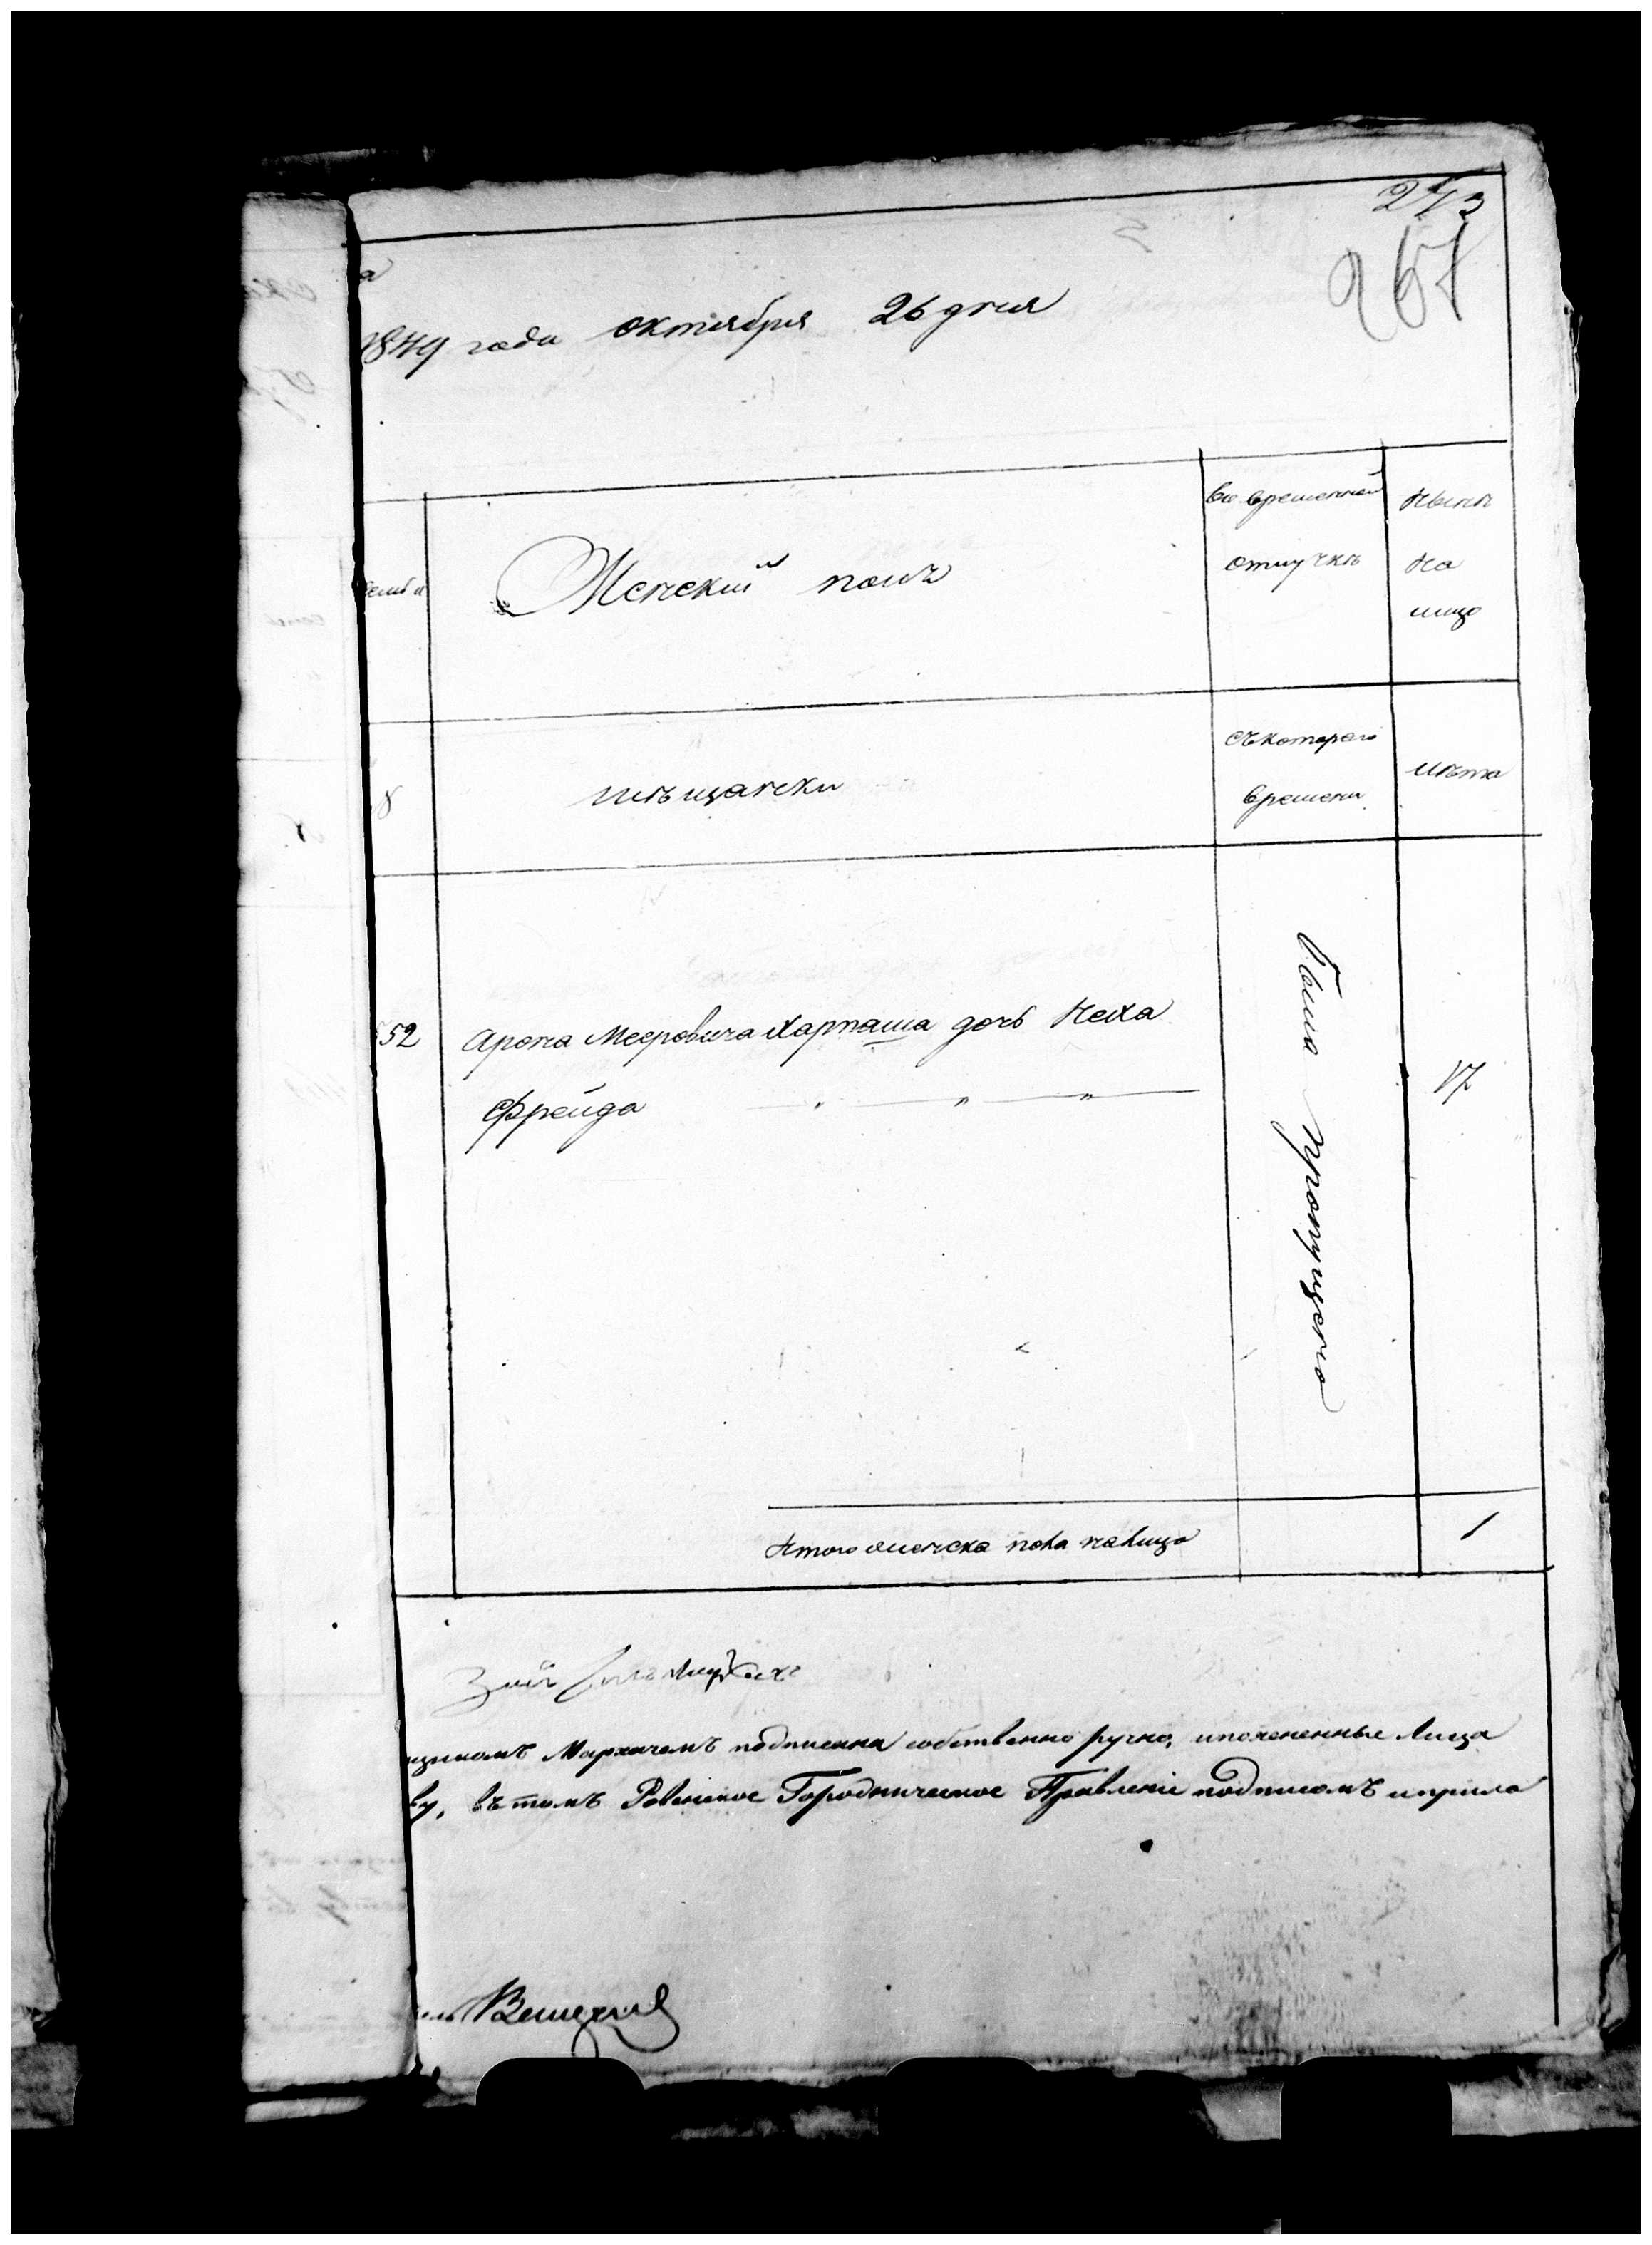 273
267
а
1849 года октября 26 дня
семьи
Женский полъ
во временной
отлучкѣ
нынѣ
на
лицо
№
мѣщански
съ котораго
времени
лѣта
552
Арона Мееровича Харпаша дочь Неха
Фрейда " " "
была пропущено
17
Итого женска пола налицо
1
щикомъ подписанна собственно ручно, и поясненные лица
ву, въ томъ Ровенское Городническое Правленіе подписомъ и прило